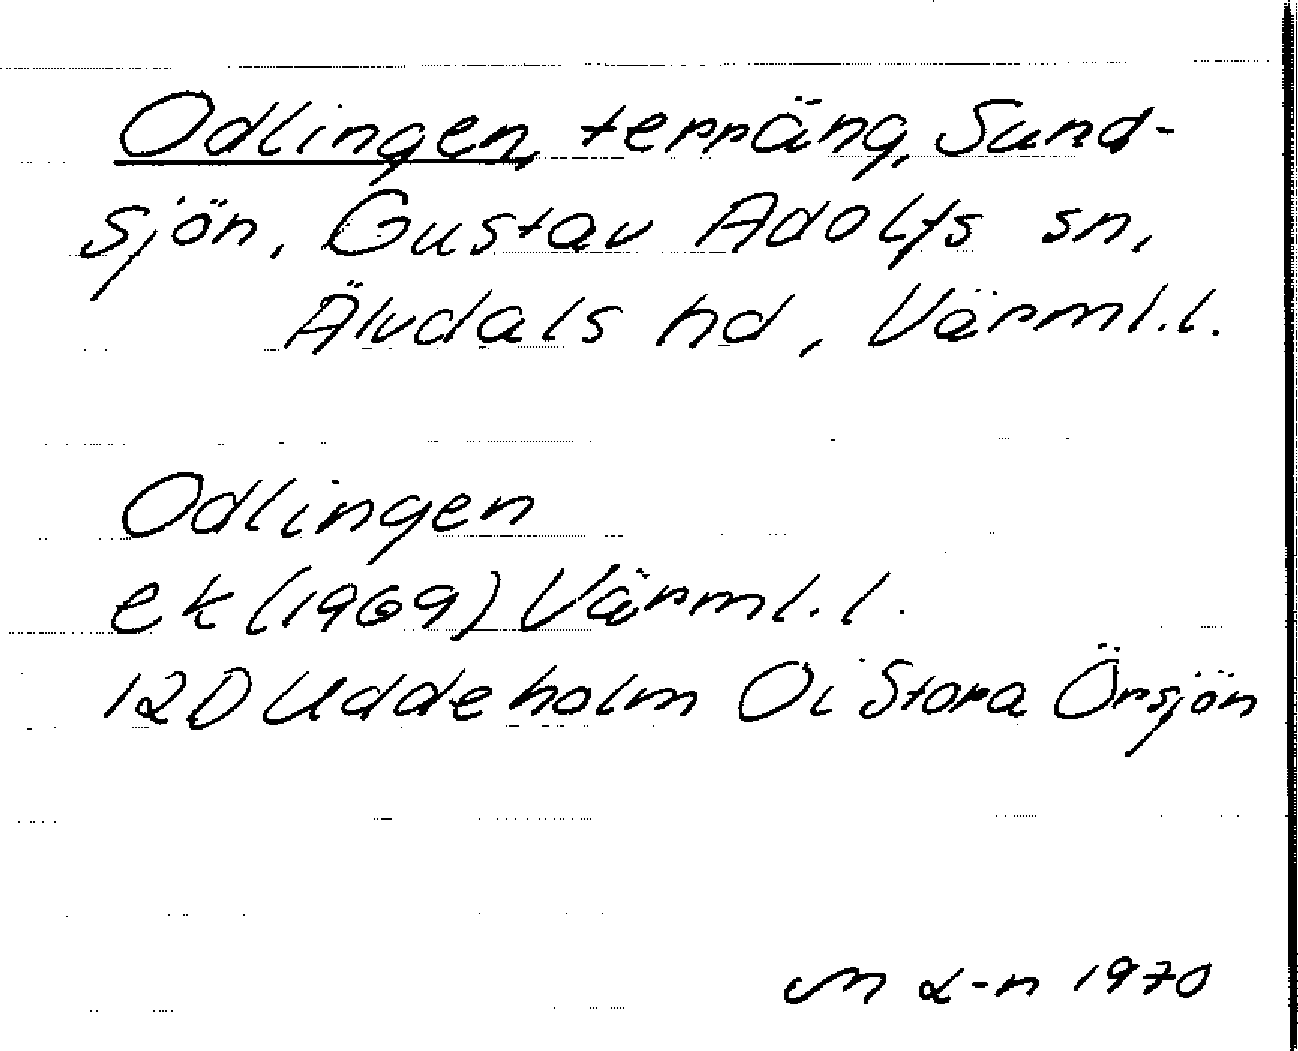 Odlingen, terräng, Sund-
sjön, Gustav Adolfs sn,
Älvdals hd, Värml.l.
Odlingen
ek (1969) Värml.l.
12D Uddeholm Oi Stora Örsjön
M L-n 1970